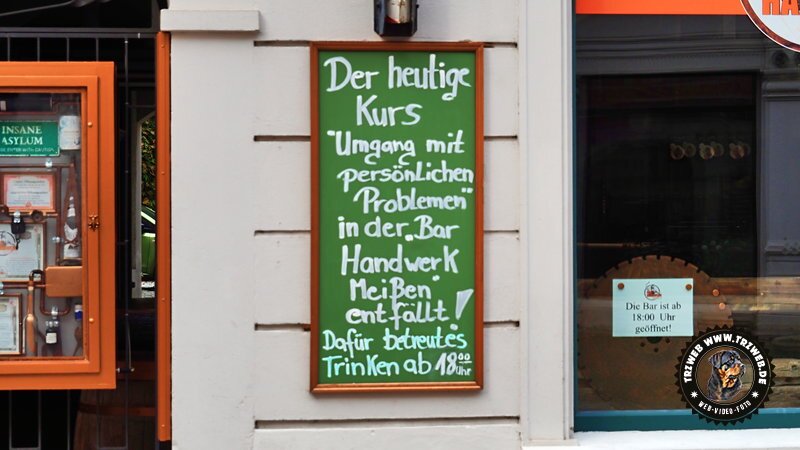 INSANE
ASYLUM
Der heutige
Kurs
"Umgang mit
persönlichen
Problemen"
in der „Bar
Handwerk
Meißen"
entfällt!
Dafür betreutes
Trinken ab 18⁰⁰ Uhr
HA
Die Bar ist ab
18:00 Uhr
geöffnet!
TRZWEB WWW.TRZWEB.DE
WEB-VIDEO-FOTO